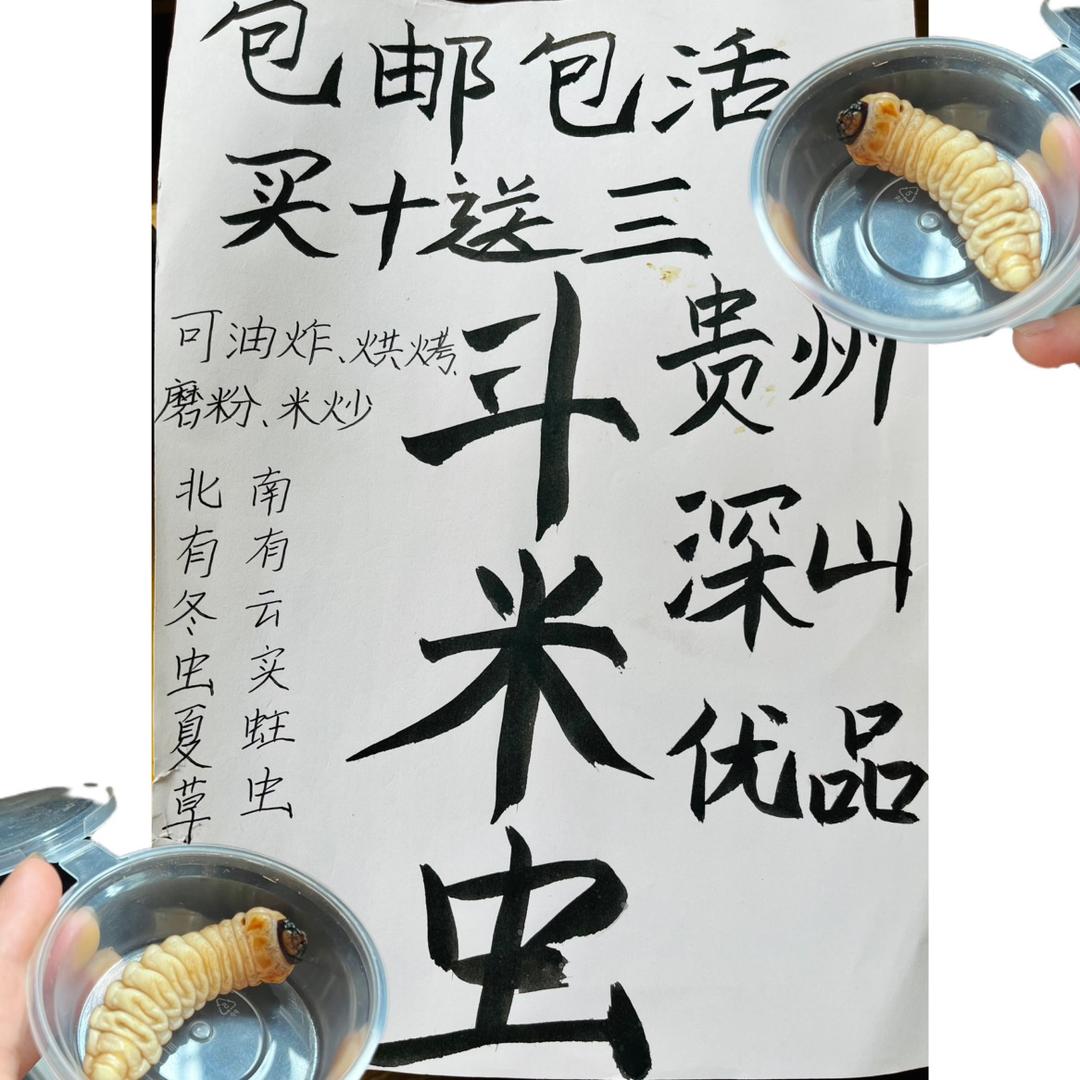 包邮包活
买十送三
可油炸、烘烤、
磨粉、米炒
斗米虫
贵州
深山
优品
北有冬虫夏草
南有云实蛀虫